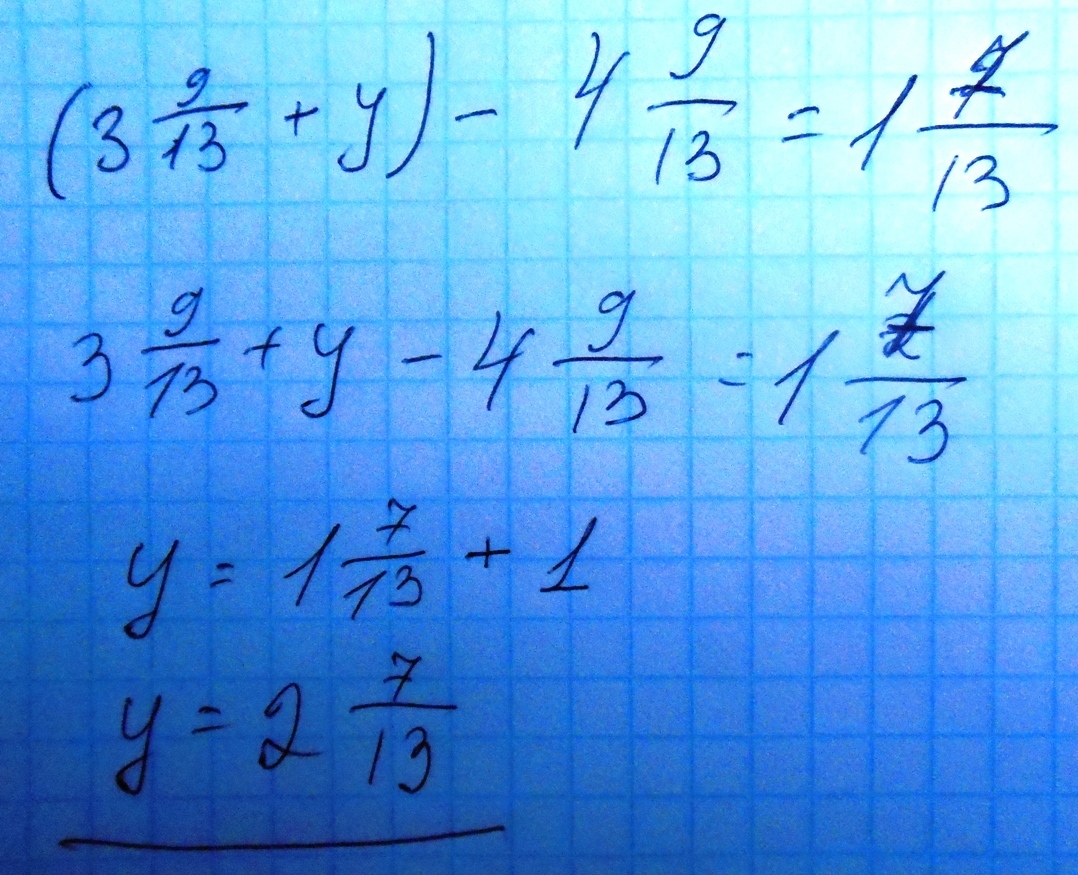 (3 9/13 + y) - 4 9/13 = 1 7/13
3 9/13 + y - 4 9/13 = 1 7/13
y = 1 7/13 + 1
y = 2 7/13